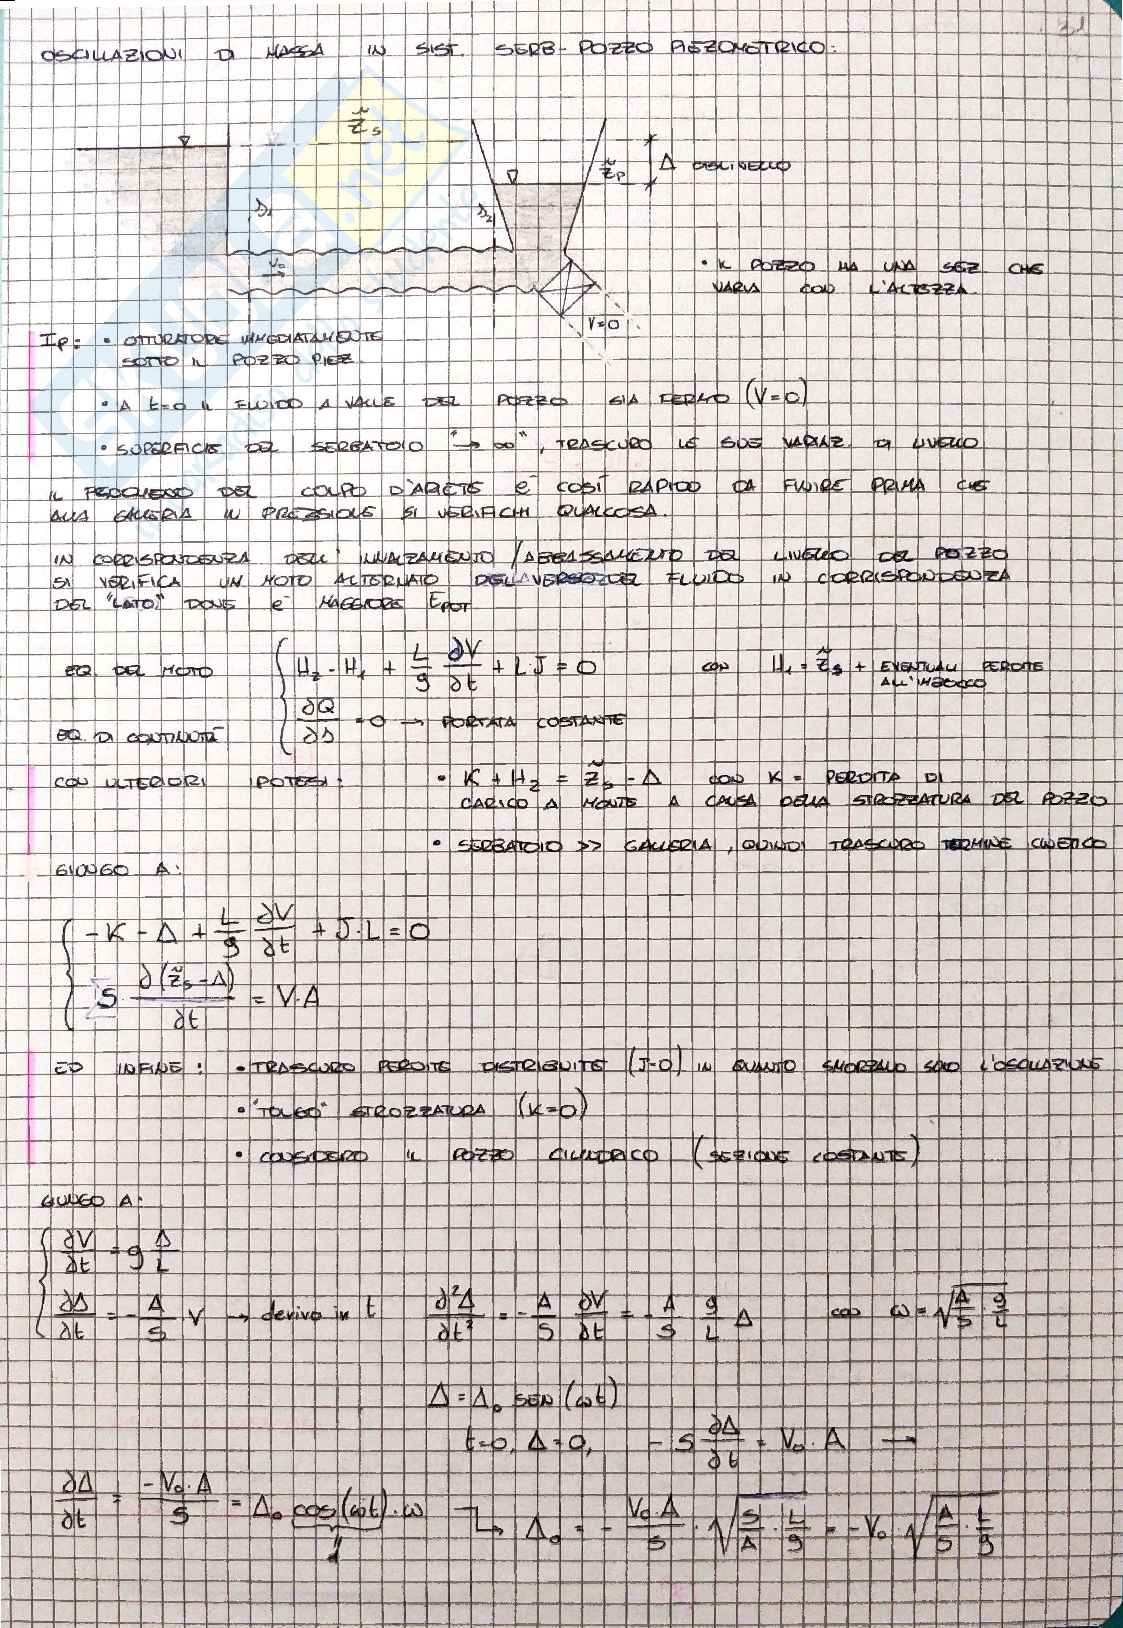 31
OSCILLAZIONI DI MASSA IN SIST. SERB-POZZO PIEZOMETRICO:
z̃s
z̃p Δ DISLIVELLO
s1 s2
V0
V=0
• IL POZZO HA UNA SEZ CHE
VARIA CON L'ALTEZZA.
Ip: • OTTURATORE IMMEDIATAMENTE
SOTTO IL POZZO PIEZ.
• A t=0 IL FLUIDO A VALLE DEL POZZO SIA FERMO (V=0)
• SUPERFICIE DEL SERBATOIO "→ ∞", TRASCURO LE SUE VARIAZ. DI LIVELLO
IL FENOMENO DEL COLPO D'ARIETE È COSÌ RAPIDO DA FINIRE PRIMA CHE
ALLA GALLERIA IN PRESSIONE SI VERIFICHI QUALCOSA.
IN CORRISPONDENZA DELL'INNALZAMENTO/ABBASSAMENTO DEL LIVELLO DEL POZZO
SI VERIFICA UN MOTO ALTERNATO DEL FLUIDO IN CORRISPONDENZA
DEL "LATO" DOVE È MAGGIORE EPOT
EQ. DEL MOTO H2 - H1 + L/g ∂V/∂t + L·J = 0 CON H1 = z̃s + EVENTUALI PERDITE
ALL'IMBOCCO
EQ. DI CONTINUITÀ ∂Q/∂s = 0 → PORTATA COSTANTE
CON ULTERIORI IPOTESI: • K + H2 = z̃s - Δ CON K = PERDITA DI
CARICO A MONTE A CAUSA DELLA STROZZATURA DEL POZZO
• SERBATOIO >> GALLERIA, QUINDI TRASCURO TERMINE CINETICO
GIUNGO A:
-K - Δ + L/g ∂V/∂t + J·L = 0
S ∂(z̃s-Δ)/∂t = V·A
ED INFINE: • TRASCURO PERDITE DISTRIBUITE (J=0) IN QUANTO SMORZANO SOLO L'OSCILLAZIONE
• "TOLGO" STROZZATURA (K=0)
• CONSIDERO IL POZZO CILINDRICO (SEZIONE COSTANTE)
GIUNGO A:
∂V/∂t = g Δ/L
∂Δ/∂t = - A/S V → derivo in t ∂²Δ/∂t² = - A/S ∂V/∂t = - A/S g/L Δ con ω = √(A/S g/L)
Δ = Δ0 SEN (ωt)
t=0, Δ=0, - S ∂Δ/∂t = V0·A →
∂Δ/∂t = -V0·A/S = Δ0 cos(ωt)·ω ↳ Δ0 = - V0·A/S · √(S/A · L/g) = -V0 √(A/S · L/g)
1